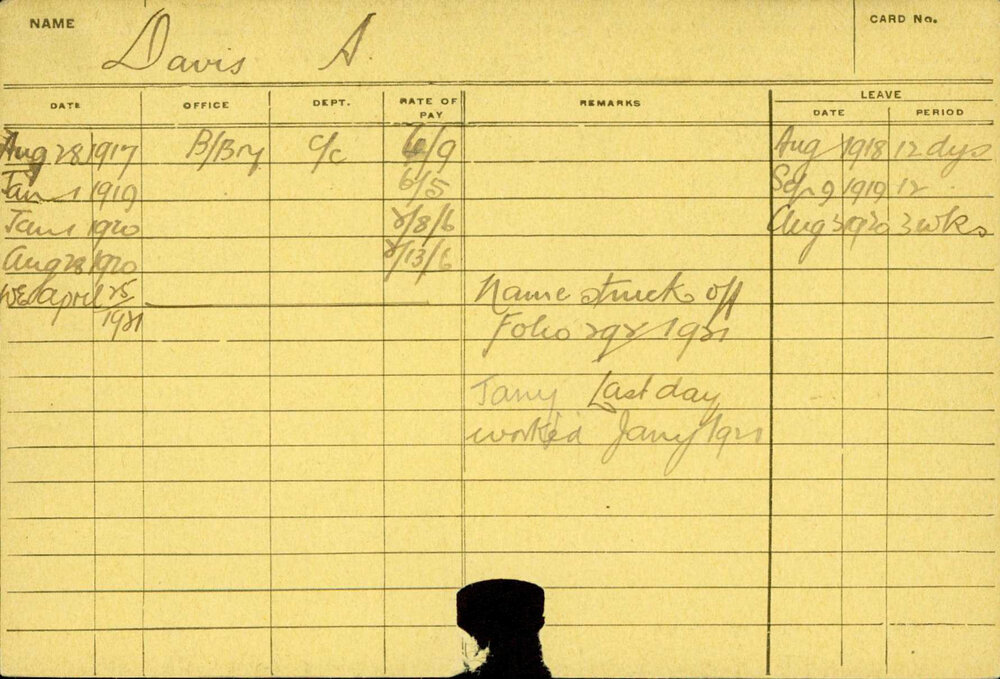 NAME Davis A. CARD No.
DATE OFFICE DEPT. RATE OF PAY REMARKS LEAVE
DATE PERIOD
Aug 28 1917 B/Bry C/c 4/9 Aug 1918 12 dys
Jan 1 1919 6/5 Sep 9 1919 12
Jan 1 1920 2/8/6 Aug 3 1920 3 wks
Aug 28 1920 2/13/6
WE April 25 Name struck off
1921 Folio 292 1921
Jany Last day
worked Jany 1921